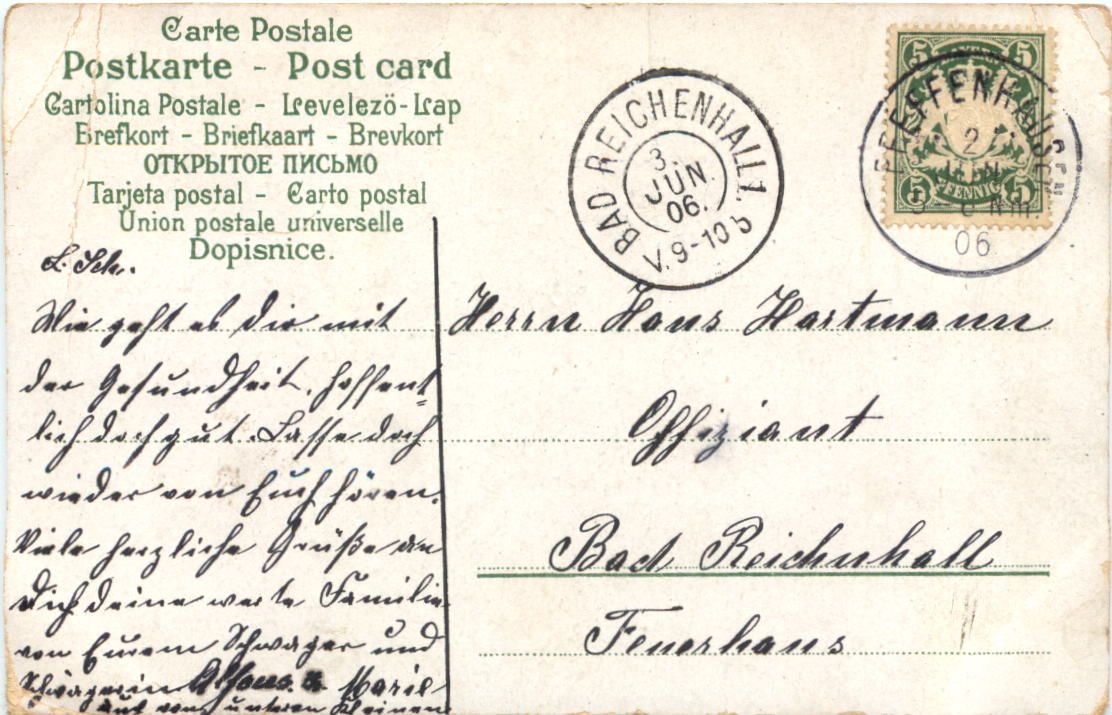 Carte Postale
Postkarte - Post card
Cartolina Postale - Levelezö-Lap
Brefkort - Briefkaart - Brevkort
ОТКРЫТОЕ ПИСЬМО
Tarjeta postal - Carto postal
Union postale universelle
Dopisnice.
L. Sch.
Wie geht es dir mit
der Gesundheit, hoffent=
lich doch gut. Lasse doch
wieder von Euch hören.
Viele herzliche Grüße an
Dich deine werte Familie
von Eurem Schwager und
Schwägerin Alfons. u. Marie
auch von unseren Kleinen
BAD REICHENHALL 1.
3.
JUN.
06.
V. 9-10 b
5 5
5 PFENNIG 5
PFEFFENHAUSEN
2
JUN
Nm.
06
Herrn Hans Hartmann
Offiziant
Bad Reichnhall
Feuerhaus